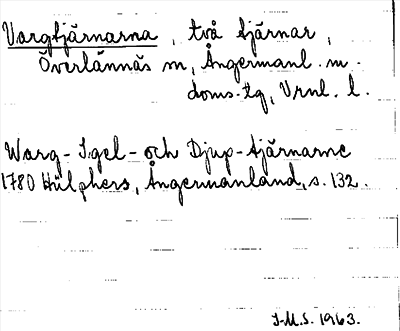 Vargtjärnarna, två tjärnar,
Överlännäs sn, Ångermanl. m.
doms.tg, Vrnl. l.
Warg- Igel- och Djup-tjärnarne
1780 Hülphers, Ångermanland, s. 132.
J.M.S. 1963.